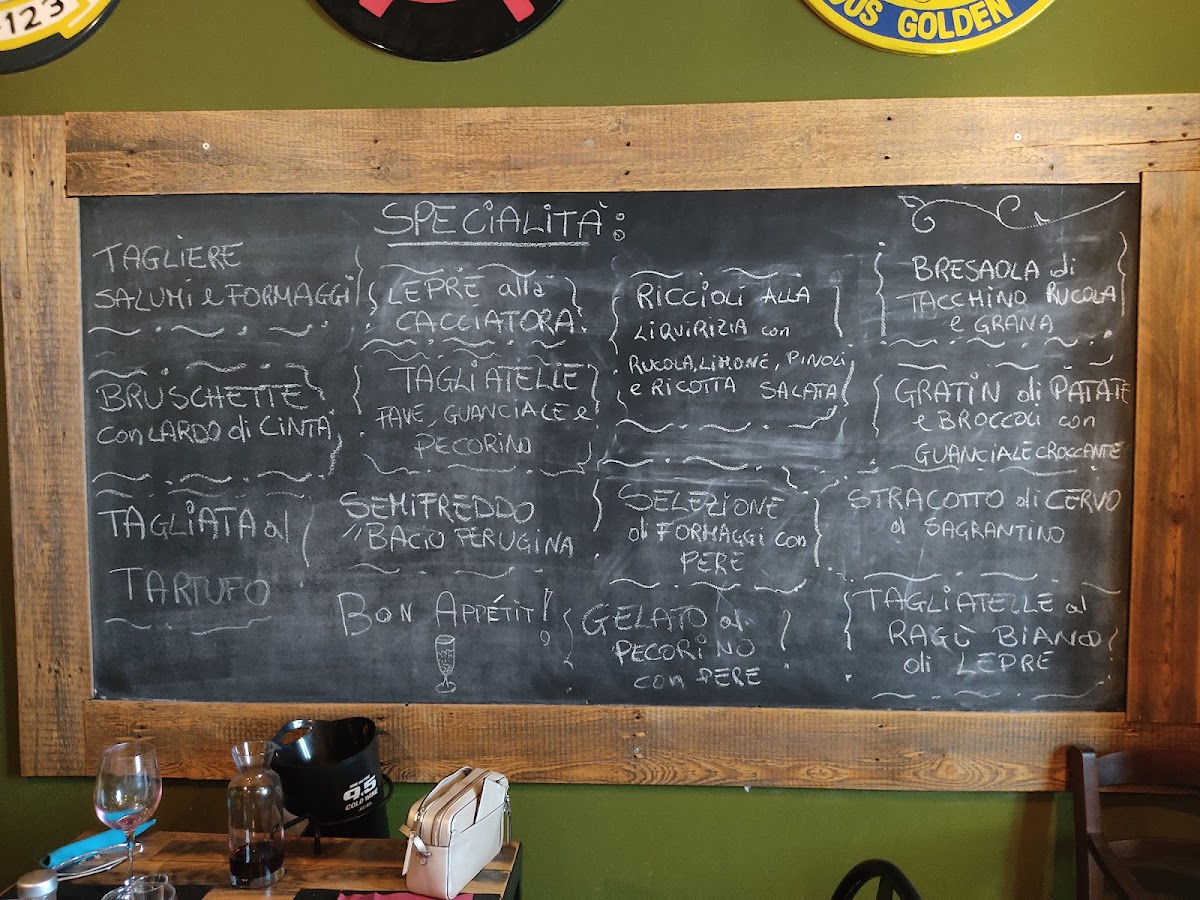 -123
OUS GOLDEN
SPECIALITÀ:
TAGLIERE
SALUMI e FORMAGGI
BRUSCHETTE
con LARDO di CINTA
TAGLIATA al
TARTUFO
LEPRE alla
CACCIATORA
TAGLIATELLE
FAVE, GUANCIALE e
PECORINO
SEMIFREDDO
"BACIO PERUGINA
BON APPÉTIT!
RICCIOLI ALLA
LIQUIRIZIA con
RUCOLA, LIMONE, PINOLI
e RICOTTA SALATA
SELEZIONE
di FORMAGGI con
PERE
GELATO al
PECORINO
con PERE
BRESAOLA di
TACCHINO RUCOLA
e GRANA
GRATIN di PATATE
e BROCCOLI con
GUANCIALE CROCCANTE
STRACOTTO di CERVO
al SAGRANTINO
TAGLIATELLE al
RAGÙ BIANCO
di LEPRE
9.5
COLD WINE